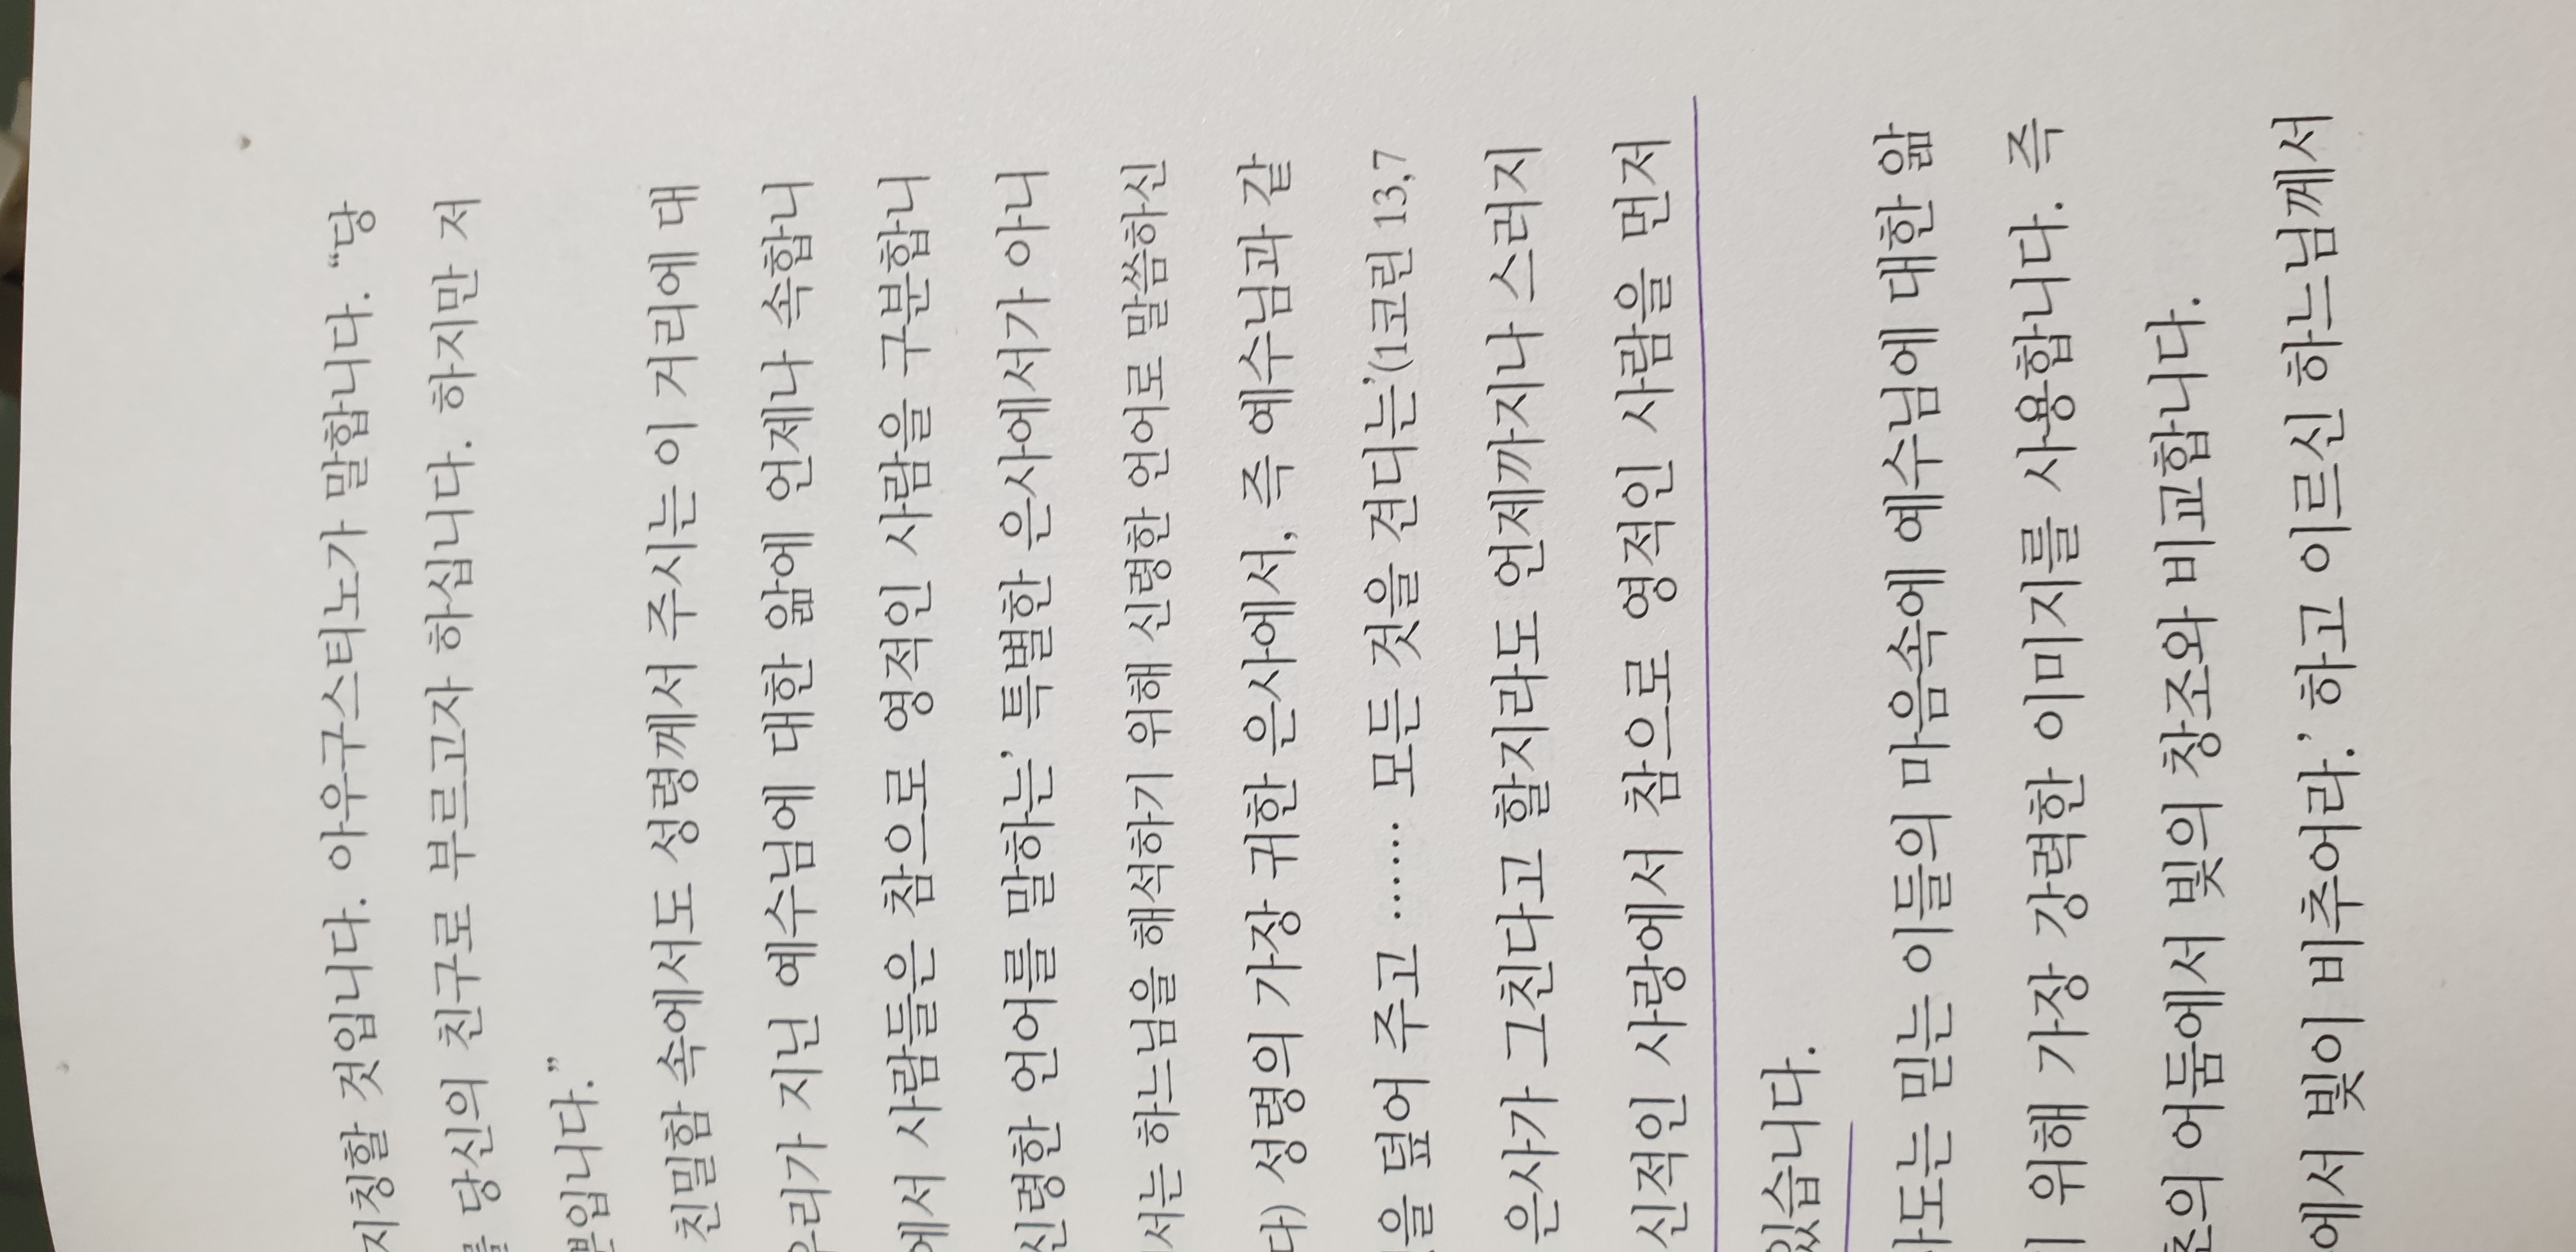 지칭할 것입니다. 아우구스티노가 말합니다. “당
를 당신의 친구로 부르고자 하십니다. 하지만 저
뿐입니다.”
친밀함 속에서도 성령께서 주시는 이 거리에 대
우리가 지닌 예수님에 대한 앎에 언제나 속합니
에서 사람들은 참으로 영적인 사람을 구분합니
신령한 언어를 말하는’ 특별한 은사에서가 아니
서는 하느님을 해석하기 위해 신령한 언어로 말씀하신
다) 성령의 가장 귀한 은사에서, 즉 예수님과 같
을 덮어 주고 …… 모든 것을 견디는’(1코린 13,7
은사가 그친다고 할지라도 언제까지나 스러지
신적인 사랑에서 참으로 영적인 사람을 먼저
있습니다.
사도는 믿는 이들의 마음속에 예수님에 대한 앎
위해 가장 강력한 이미지를 사용합니다. 즉
초의 어둠에서 빛의 창조와 비교합니다.
에서 빛이 비추어라.’ 하고 이르신 하느님께서